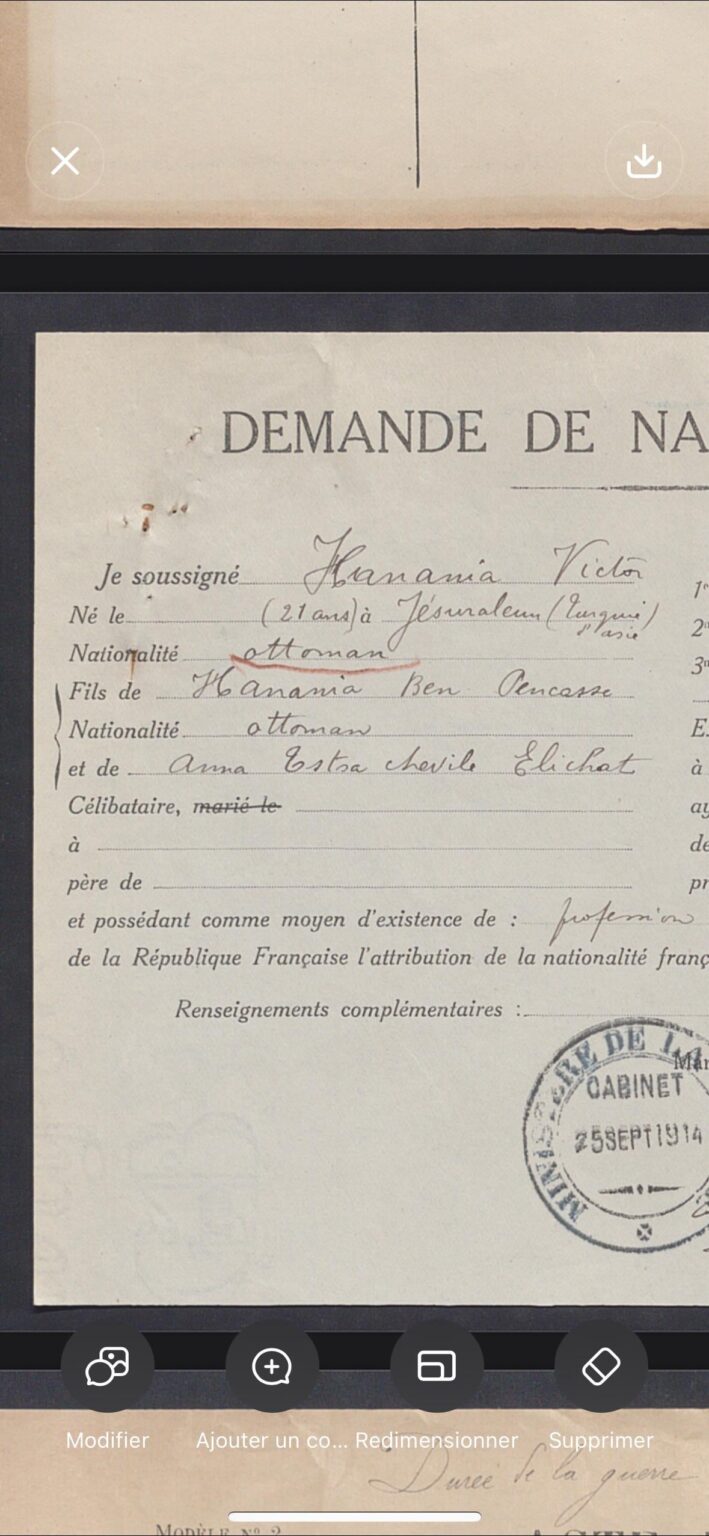 DEMANDE DE NA
Je soussigné Hanania Victor
Né le (21 ans) à Jésuralem (Turquie d'asie)
Nationalité ottoman
Fils de Hanania Ben Pencasse
Nationalité ottoman
et de Anna Estra chevile Elichat
Célibataire, marié le
à
père de
et possédant comme moyen d'existence de : profession
de la République Française l'attribution de la nationalité franç
Renseignements complémentaires :
1e
2e
3e
E.
à
ay
de
pr
MINISTÈRE DE LA
Mar
CABINET
25 SEPT 1914
Modifier
Ajouter un co...
Redimensionner
Supprimer
Durée de la guerre
MODÈLE Nº 2